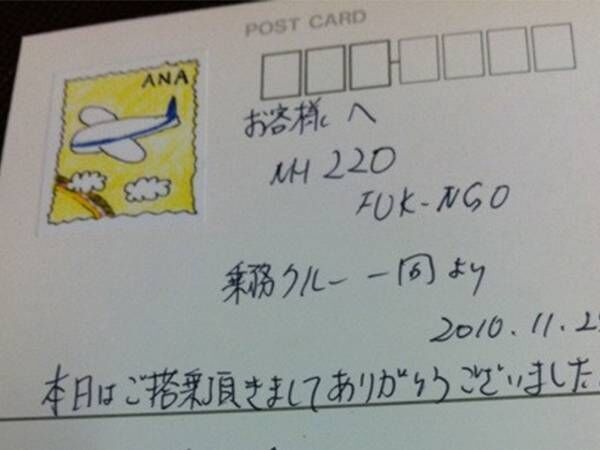 POST CARD
ANA
お客様へ
NH 220
FUK-NGO
乗務クルー一同より
2010.11.2
本日はご搭乗頂きましてありがとうございました。